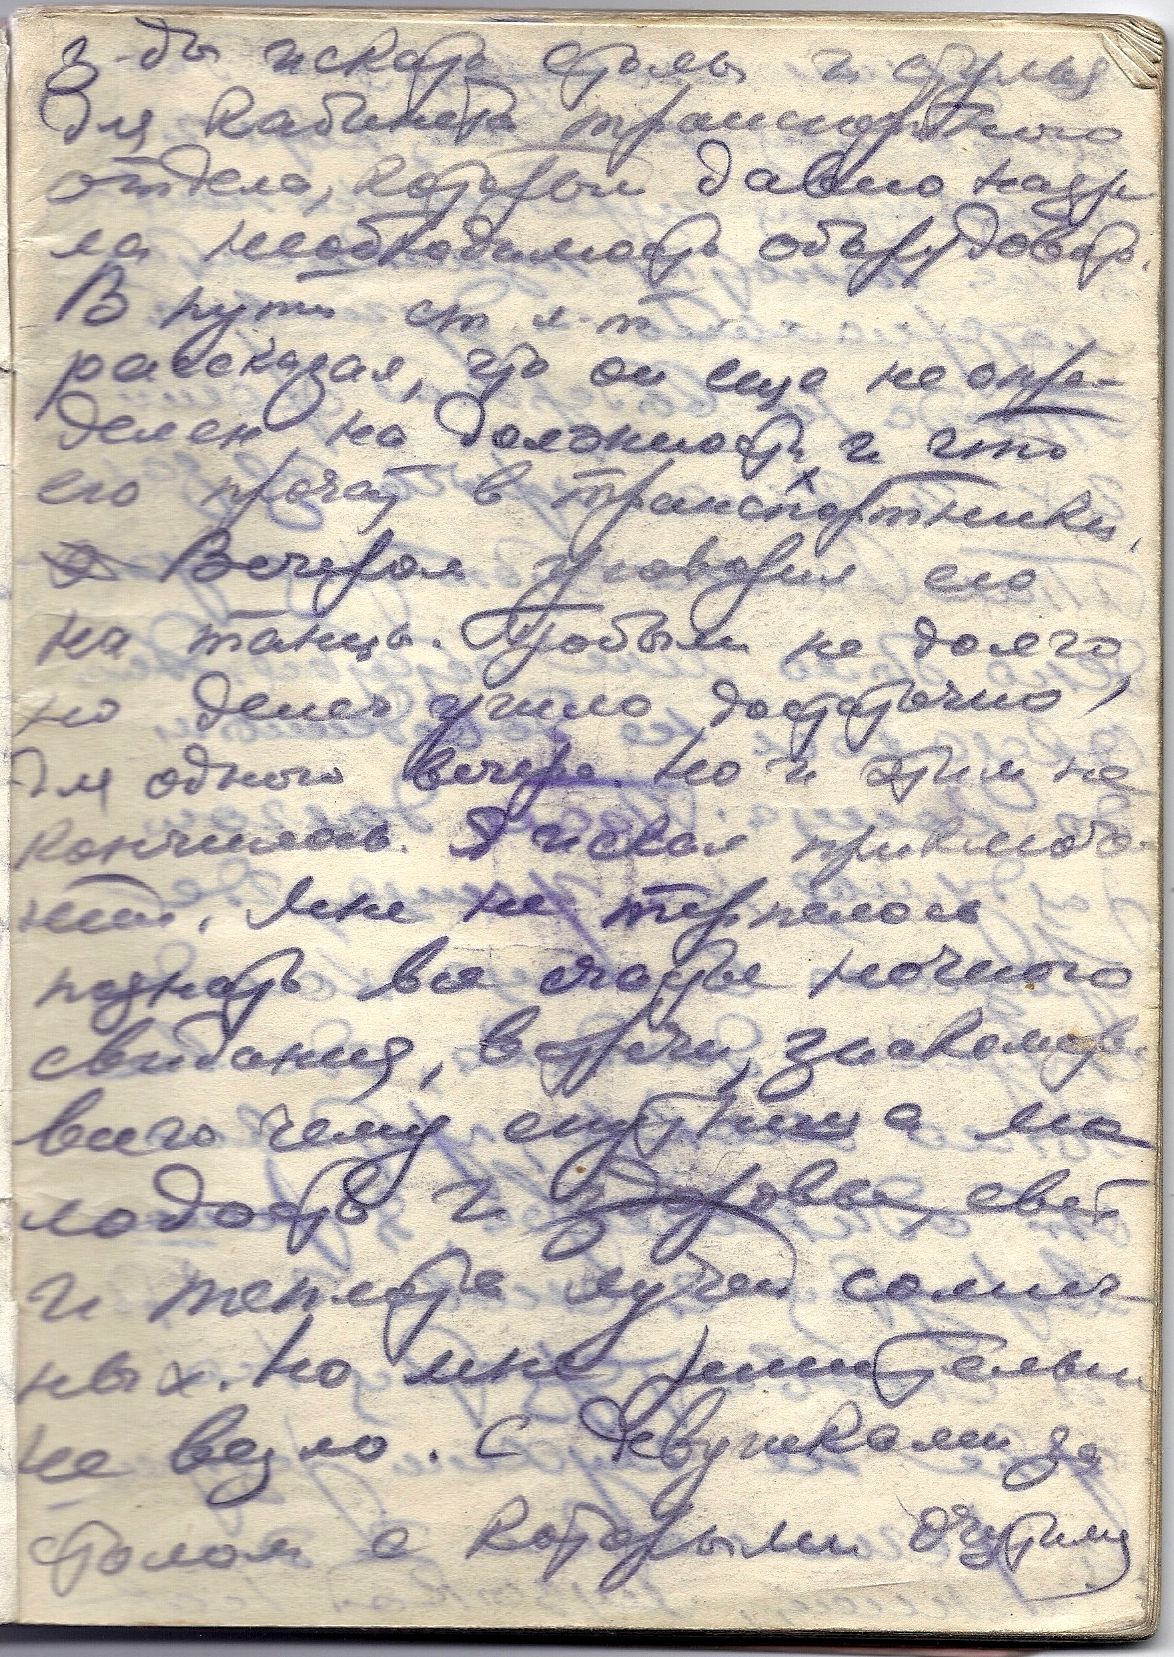 з-ды искать столы и стулья
для кабинета транспортного
отдела, который давно назре
ла необходимость оборудовать.
В пути ст. л-т
рассказал, что он еще не опре-
делен на должность и что
его прочат в транспортники.
Вечером уговорил его
на танцы. Пробыли не долго
но денег ушло достаточно,
для одного вечера. Но и этим не
кончилось. Я искал приключе-
ний. Мне не терпелось
познать все счастье ночного
свидания, встречи, знакомства
всего чему спутница мо
лодость и здоровье, свет
и теплота лучей солнеч
ных. Но мне решительно
не везло. С девушками за
столом с которыми очутились